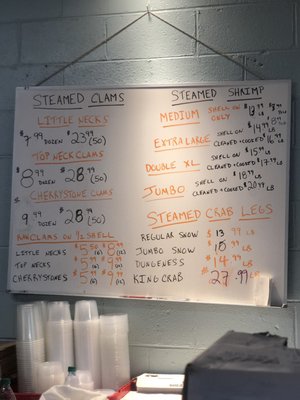 STEAMED CLAMS
LITTLE NECKS
$7.99 DOZEN $23.99 (50)
TOP NECK CLAMS
8.99 DOZEN $28.99 (50)
CHERRYSTONE CLAMS
$9.99 DOZEN $28.99 (50)
RAW CLAMS ON ½ SHELL
LITTLE NECKS $5.50 (6) $8.99 (12)
TOP NECKS $5.99 (6) $9.99 (12)
CHERRYSTONES $5.99 (6) $9.99 (12)
STEAMED SHRIMP
MEDIUM SHELL ON ONLY
EXTRA LARGE SHELL ON $14.99
CLEANED + COOKED $16.99 LB
DOUBLE XL SHELL ON $15.99 LB
CLEANED + COOKED $17.99 LB
JUMBO SHELL ON $18.99 LB
CLEANED + COOKED $20.99 LB
STEAMED CRAB LEGS
REGULAR SNOW $13.99 LB
JUMBO SNOW LB
DUNGENESS $14.99 LB
KING CRAB $27.99 LB